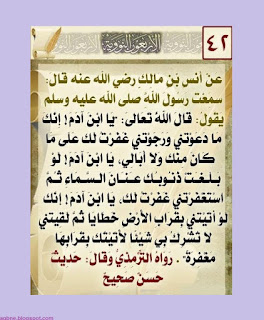 الأربعون النووية
٤٢
عَنْ أنَس بْن مالكٍ رَضِيَ الله عنه قال:
سمِعْت رسُولَ اللهُ صَلَّى اللهُ عليه وسلم
يقولُ: قال اللهُ تَعَالى: "يا ابْنَ آدَمُ! إِنَّكَ
ما دَعَوْتَنِي وَرَجَوْتَنِي غَفَرْتُ لكَ عَلَى مَا
كانَ مِنْكَ وَلا أُبَالي، يا ابْنَ آدَمُ! لَوْ
بلغتْ ذُنُوبُكَ عنَانَ السَّمَاء ثُمَّ
اسْتَغْفَرْتَنِي غَفَرْتُ لكَ، يا ابْنَ آدَمُ! إِنَّكَ
لَوْ أتيْتني بقُرَاب الأَرْض خطَايَا ثُمَّ لَقيتَني
لا تُشْركُ بي شَيْئًا لأَتيْتُكَ بِقُرَابِهَا
مَغْفِرَةً". رَوَاهُ التِّرْمِذِيُّ وَقالَ: حَدِيثٌ
حَسَنٌ صَحِيحٌ